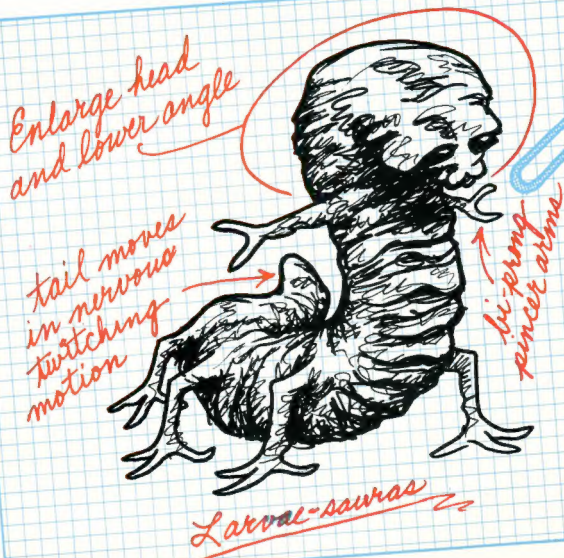 Enlarge head
and lower angle
tail moves
in nervous
twitching
motion
bi-prong
pincer arms
Larvae-sauras